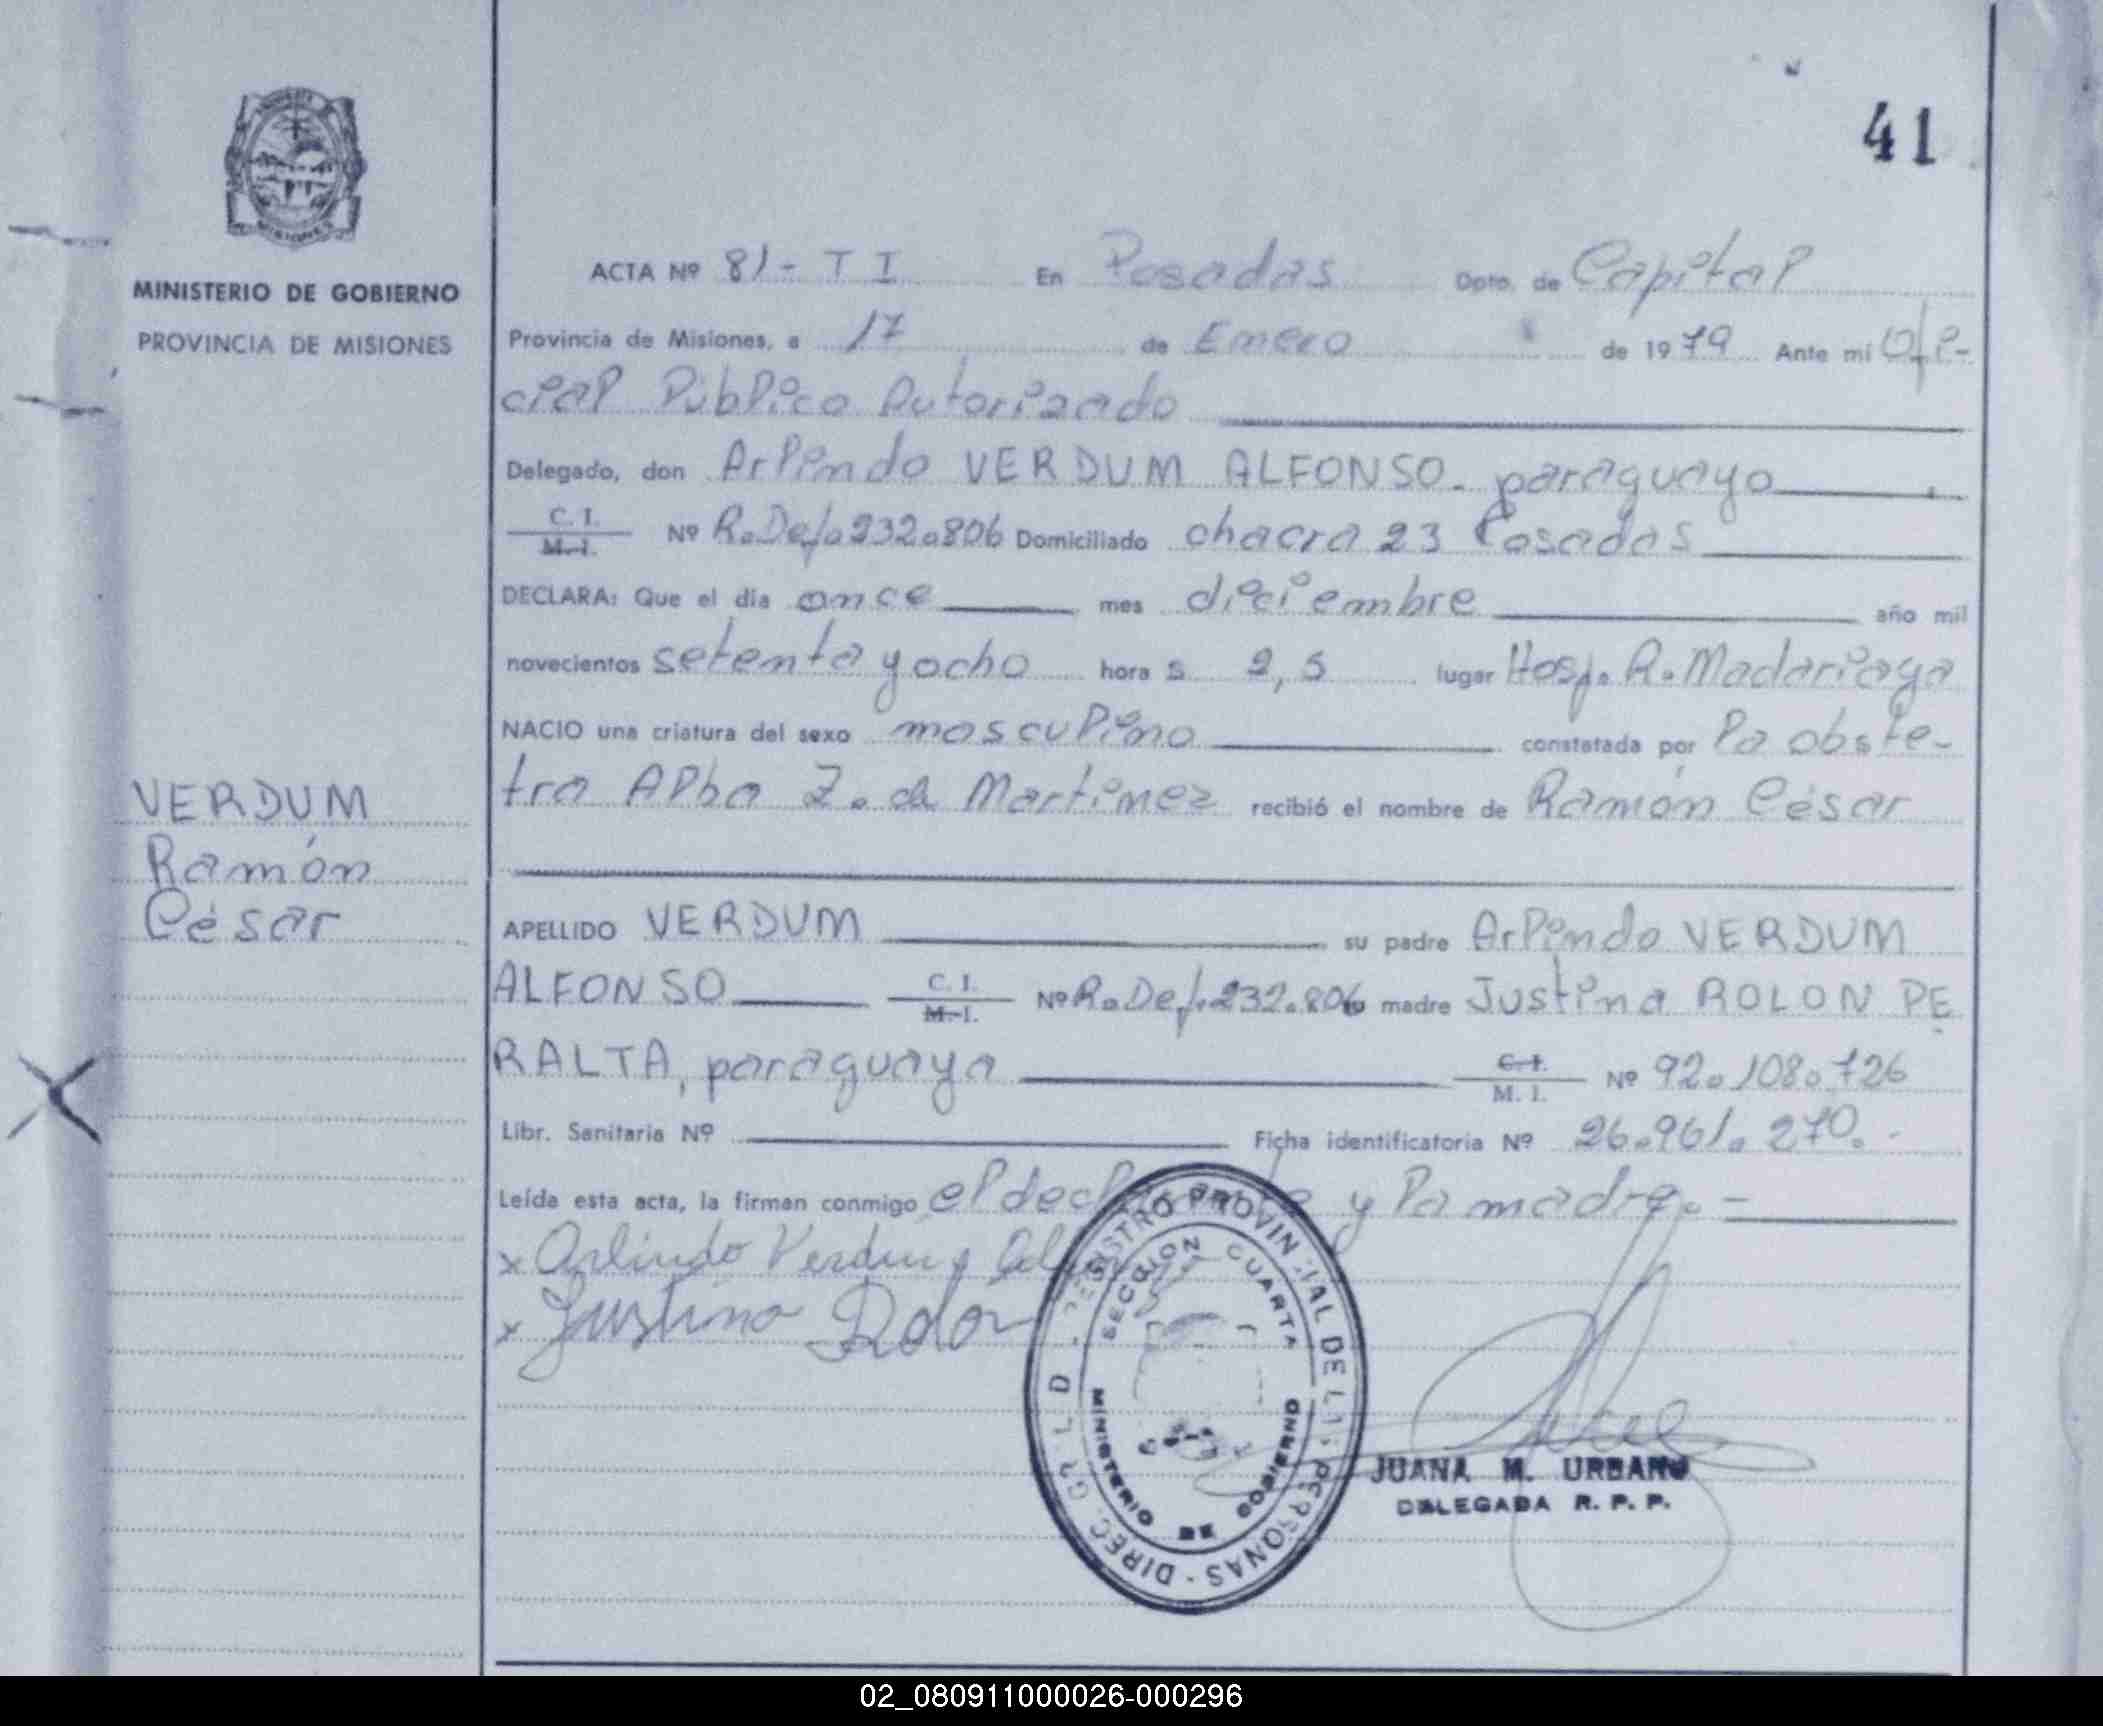 41
MINISTERIO DE GOBIERNO
PROVINCIA DE MISIONES
VERDUM
Ramón
César
ACTA Nº 81- T I En Posadas Dpto. de Capital
Provincia de Misiones, a 17 de Enero de 1979 Ante mí Ofi-
cial Público Autorizado
Delegado, don Arlindo VERDUM ALFONSO. paraguayo
C. I.
M. I. Nº R.Def.232.806 Domiciliado chacra 23 Posadas
DECLARA: Que el día once mes diciembre año mil
novecientos setenta y ocho hora s 2,5 lugar Hosp. R. Madariaga
NACIO una criatura del sexo masculino constatada por la obste-
tra Alba Z. de Martinez recibió el nombre de Ramón César
APELLIDO VERDUM su padre Arlindo VERDUM
ALFONSO C. I. M. I. Nº R.Def.232.806 su madre Justina ROLON PE
RALTA, paraguaya C. I. M. I. Nº 92.108.726
Libr. Sanitaria Nº Ficha identificatoria Nº 26.961.270.-
Leída esta acta, la firman conmigo el declarante y la madre.-
x Arlindo Verdum
x Justina Rolon
DIREC. GRAL D. REGISTRO PROVINCIAL DE LAS PERSONAS -
SECCION CUARTA
MINISTERIO DE GOBIERNO
JUANA M. URBANO
DELEGADA R. P. P.
02_080911000026-000296